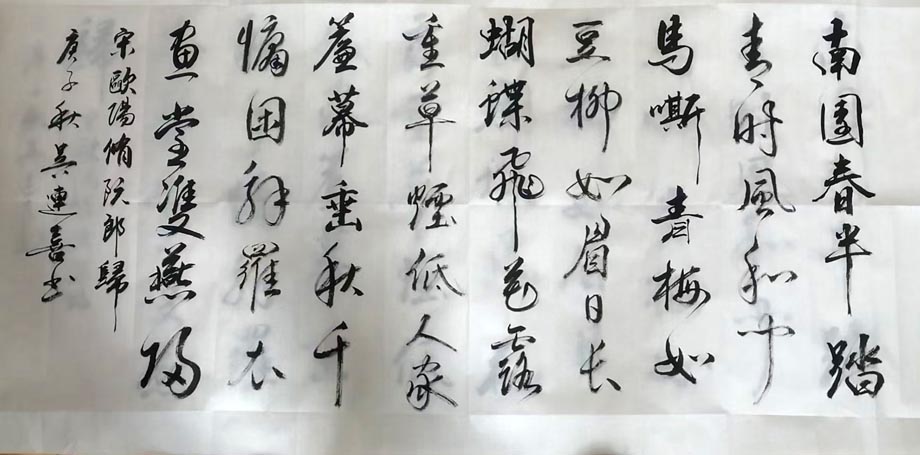 南園春半踏
青時風和聞
馬嘶青梅如
豆柳如眉日長
蝴蝶飛花露
重草煙低人家
簾幕垂秋千
慵困解羅衣
畫堂雙燕歸
宋歐陽脩阮郎歸
庚子秋吳連喜书